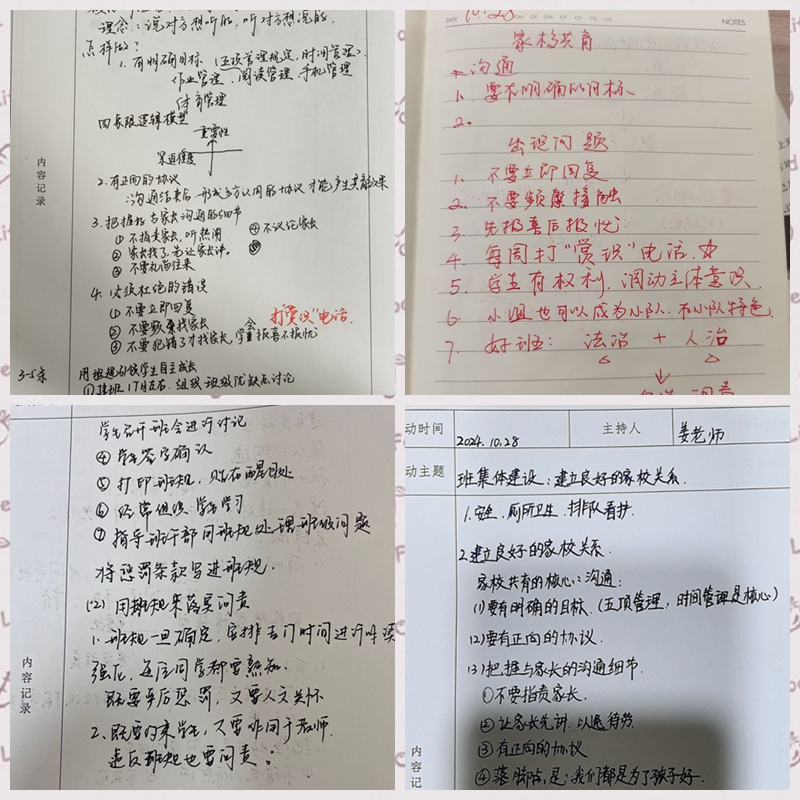 理念：说对方想听的，听对方想说的.
怎样做？
1. 有明确目标. (五项管理规定，时间管理，
作业管理、阅读管理、手机管理
体育管理
四象限逻辑模型
重要性
紧迫程度
2. 有正向的协议
沟通结束后，形成多方认同的协议才能产生共育效果
3. 把握好与家长沟通的细节
① 不指责家长，听热闹
④ 不议论家长
② 家长找了，先让家长讲。
③ 不要礼尚往来
4. 必须杜绝的错误
① 不要立即回复
② 不要频繁找家长
③ 不要犯错了才找家长，学会报喜不报忧
打"赏识"电话.
内容记录
3-5条
用班规引领学生自主成长
① 接班1个月左右，组织班级优缺点讨论
DATE 10.28
NOTES
家校共育
沟通
1. 要有明确的目标.
2.
出现问题
1. 不要立即回复
2. 不要频繁接触
3. 先报喜后报忧
4. 每周打"赏识"电话.
5. 学生有权利，调动主体意识
6. 小组也可以成为小队，有小队特色.
7. 好班：法治 + 人治
学生召开班会进行讨论
④ 学生签字确认
⑤ 打印班规，贴在醒目处
⑥ 经常组织学生学习
⑦ 指导班干部用班规处理班级问题
将惩罚条款写进班规.
(2) 用班规来落实问责
1. 班规一旦确定，安排专门时间进行解读
强化，每位同学都要熟知.
既要事后惩罚，又要人文关怀
2. 既要约束学生，又要作用于老师.
违反班规也要问责.
内容记录
动时间
2024.10.28
主持人
姜老师
动主题
班集体建设：建立良好的家校关系.
1. 安全，厕所卫生，排队看护.
2. 建立良好的家校关系.
家校共育的核心：沟通：
(1) 要有明确的目标. (五项管理，时间管理是核心)
(2) 要有正向的协议.
(3) 把握与家长的沟通细节.
① 不要指责家长.
② 让家长先讲. 以逸待劳
③ 有正向的协议
④ 落脚点是：我们都是为了孩子好.
内容记